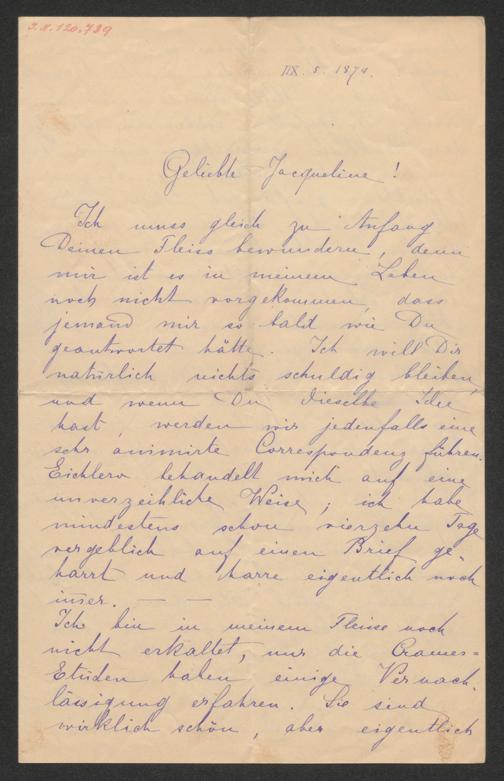 I.N. 120.739
IIX. 5. 1874.
Geliebte Jacqueline!
Ich muss gleich zu Anfang
Deinen Fleiss bewundern, denn
mir ist es in meinem Leben
noch nicht vorgekommen, dass
jemand mir so bald wie Du
geantwortet hätte. Ich will Dir
natürlich nichts schuldig bleiben,
und wenn Du dieselbe Idee
hast, werden wir jedenfalls eine
sehr animirte Correspondenz führen.
behandelt mich auf eine
unverzeihliche Weise; ich habe
mindestens schon vierzehn Tage
vergeblich auf einen Brief ge-
harrt und harre eigentlich noch
im̄er. — —
Ich bin in meinem Fleisse noch
nicht erkaltet, nur die Cramer=
Etüden haben einige Vernach-
lässigung erfahren. Sie sind
wirklich schön, aber eigentlich